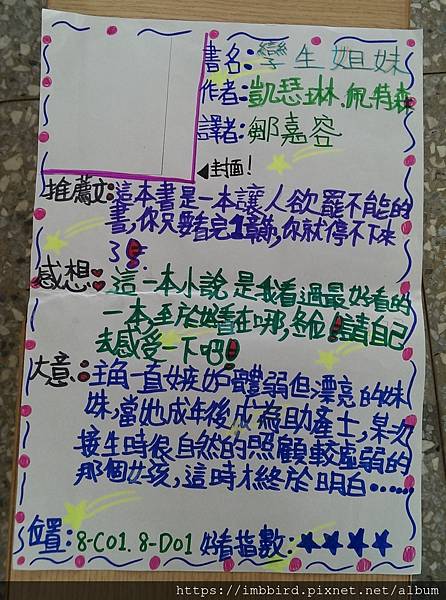 書名:孿生姐妹
作者:凱瑟琳.佩特森
譯者:鄒嘉容
封面!
推薦文:這本書是一本讓人欲罷不能的
書,你只要看完1章節,你就停不下來
了!
感想:這一本小說是我看過最好看的
一本,至於好看在哪,各位!請自己
去感受一下吧!
大意:主角一直嫉妒體弱但漂亮的妹
妹,當她成年後成為助產士,某次
接生時很自然的照顧較虛弱的
那個女孩,這時才終於明白……
位置:8-C01.8-D01 好看指數:★★★★
https://imbbird.pixnet.net/album